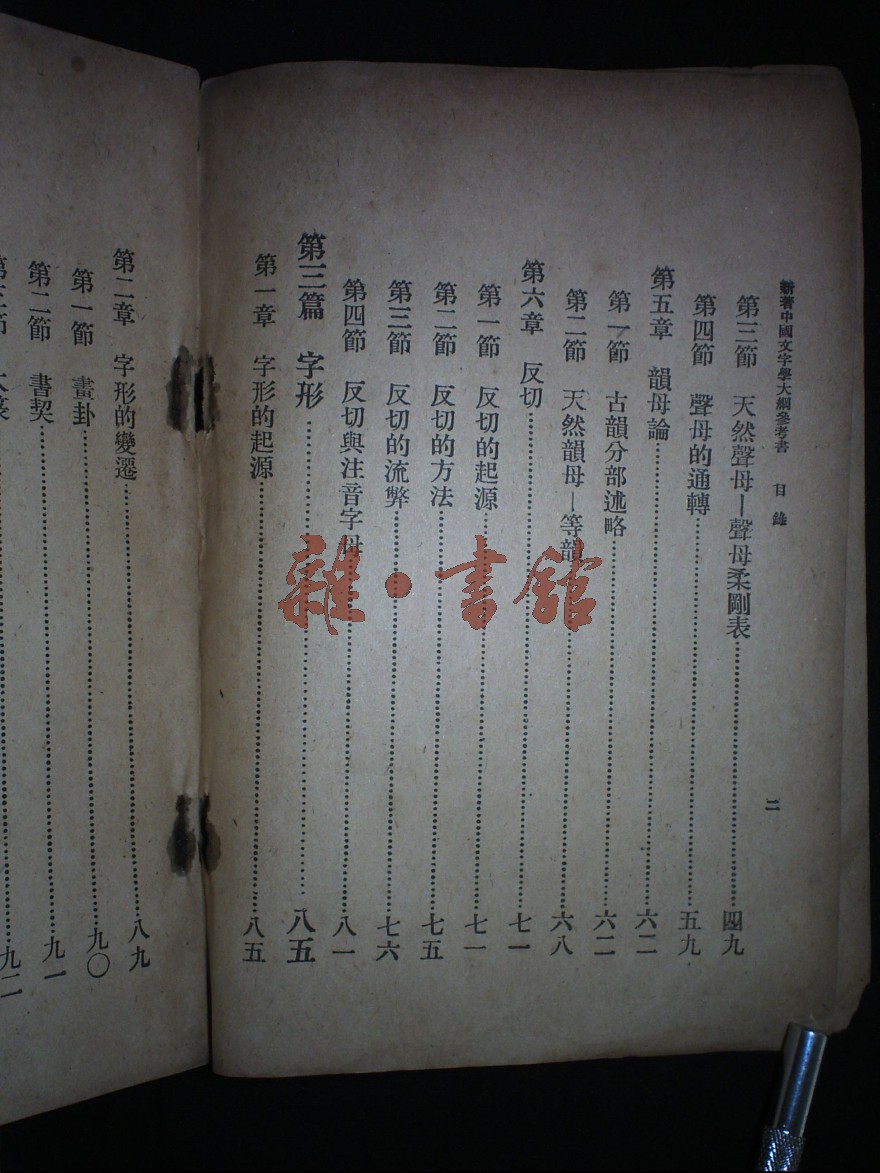 新著中國文字學大綱參考書 目錄 二
第三節 天然聲母—聲母柔剛表……四九
第四節 聲母的通轉……五九
第五章 韻母論……六二
第一節 古韻分部述略……六二
第二節 天然韻母—等韻……六八
第六章 反切……七一
第一節 反切的起源……七一
第二節 反切的方法……七五
第三節 反切的流弊……七六
第四節 反切與注音字母……八一
第三篇 字形……八五
第一章 字形的起源……八五
第二章 字形的變遷……八九
第一節 畫卦……九〇
第二節 書契……九一
第三節 大篆……九二
雜·書館